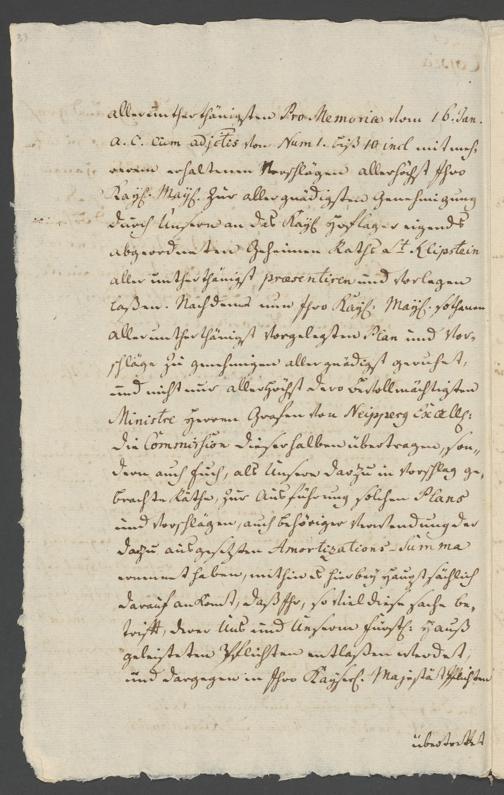 33
allerunterthänigsten Pro Memoria vom 16. Jan.
a. c. cum adjctis von Num 1. biß 10 incl mit meh-
rerem erhaltenen Vorschlägen allerhöchst Ihro
Kayß. Mayß. zur allergnädigsten Genehmigung
durch Unsern an das Kayß Hoflager eigends
abgeordneten Geheimen Raths a t Klipstein
allerunterthänigst præsentiren und vorlegen
laßen. Nachdeme nun Ihro Kayß. Mayß. sothanen
allerunterthänigst vorgelegten Plan und Vor-
schläge zu genehmigen allergnädigst geruhet,
und nicht nur allerhöchst dero bevollmächtigten
Ministre Herren Grafen von Neipperg Excell:
die Commission dieserhalben übertragen, son-
dern auch Euch, als Unsere darzu in Vorschlag ge-
brachte Räthe, zur Ausführung solchen Plans
und Vorschlägen, auch behöriger Verwendung der
darzu ausgesetzten Amortizations-Summa
ernennt haben, mithin es hierbey hauptsächlich
darauf ankomt, daß Ihr, so viel diese Sache be-
trifft, derer Uns und Unserm Fürstl: Hauß
geleisteten Pflichten entlaßen werdet,
und dargegen in Ihro Kayserl: Majestät Pflichten